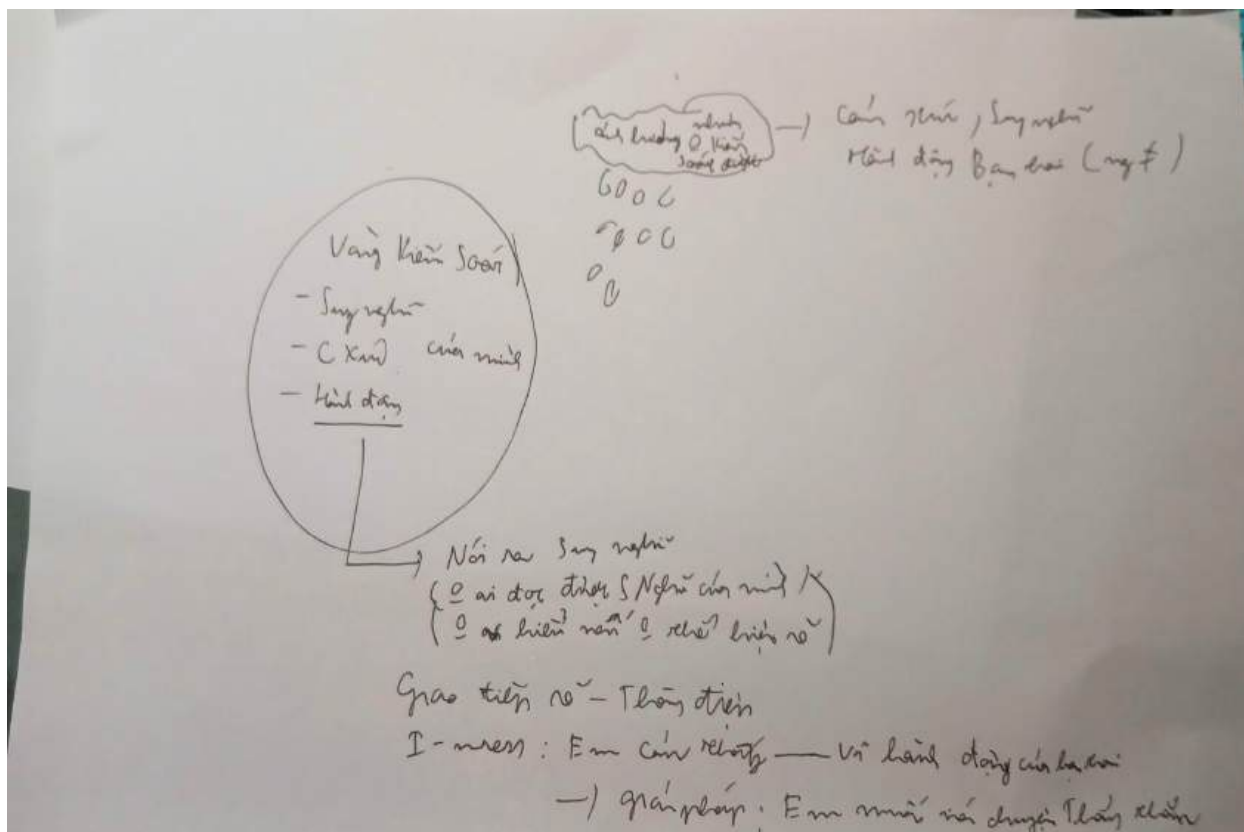 ảnh hưởng nhưng 0 kiểm soát được → Cảm xúc, Suy nghĩ
Hành động Bạn trai (ng ≠)
Vòng kiểm soát
- Suy nghĩ
- C Xúc của mình
- Hành động
→ Nói ra Suy nghĩ
(0 ai đọc được S Nghĩ của mình)
(0 ai hiểu nếu 0 thể hiện rõ)
Giao tiếp rõ - Thông điệp
I-mess: Em cảm thấy — Vì hành động của bạn trai
→ giải pháp: Em muốn nói chuyện Thẳng thắn